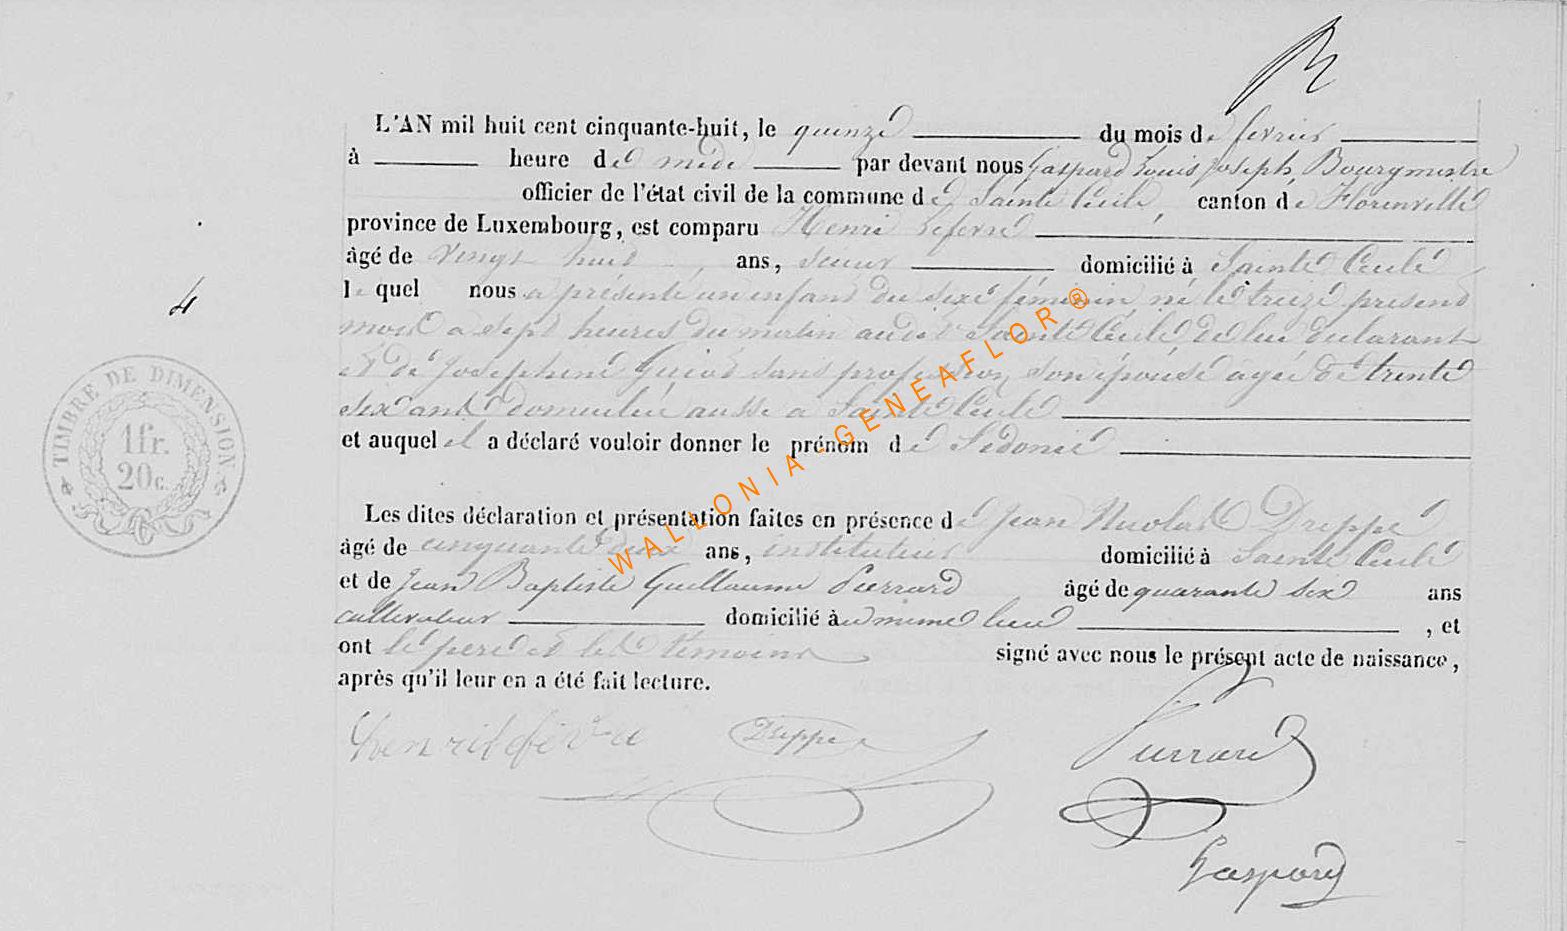 L'AN mil huit cent cinquante-huit, le quinze du mois de fevrier
à heure de midi par devant nous Gaspard Louis Joseph, Bourgmestre
officier de l'état civil de la commune de Sainte Cécile, canton de Florenville
province de Luxembourg, est comparu Henri Lefevre
âgé de vingt huit ans, domicilié à Sainte Cécile
le quel nous a présenté un enfant du sexe féminin, né le treize present
mois a sept heures du matin audit Sainte Cécile de lui declarant
et de Josephine sans profession, son épouse agée de trente
six ans domiciliée aussi a Sainte Cécile
et auquel il a déclaré vouloir donner le prénom de Sidonie
4
TIMBRE DE DIMENSION
1 fr.
20 c.
Les dites déclaration et présentation faites en présence de Jean Nicolas Dreppe
âgé de cinquante deux ans, instituteur domicilié à Sainte Cécile
et de Jean Baptiste Guillaume Pierrard âgé de quarante six ans
cultivateur domicilié au même lieu, et
ont le pere et les temoins signé avec nous le présent acte de naissance,
après qu'il leur en a été fait lecture.
Henri lefèvre Dreppe Pierrard
Gaspard
WALLONIA - GENEAFLOR ®